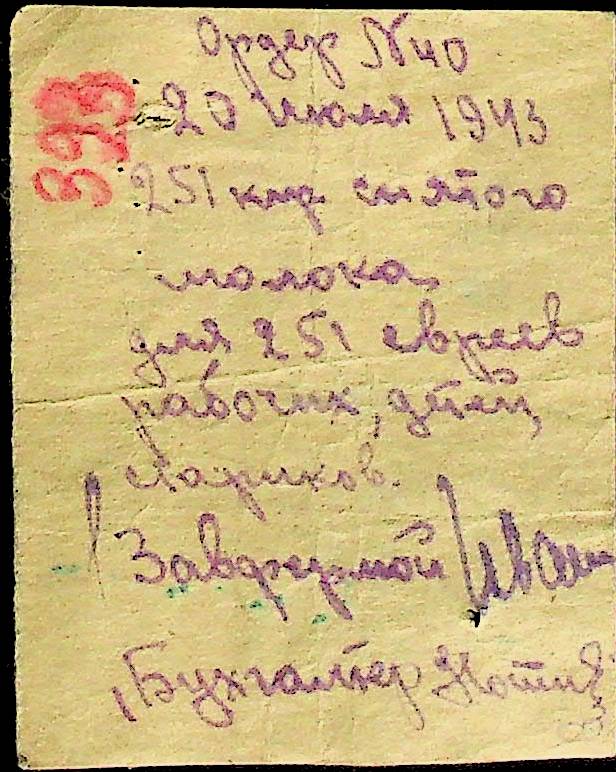 Ордер №40
323
20 июля 1943
251 клг снятого
молока
для 251 евреев
рабочих, детей,
стариков.
Завфермой
Бухгалтер